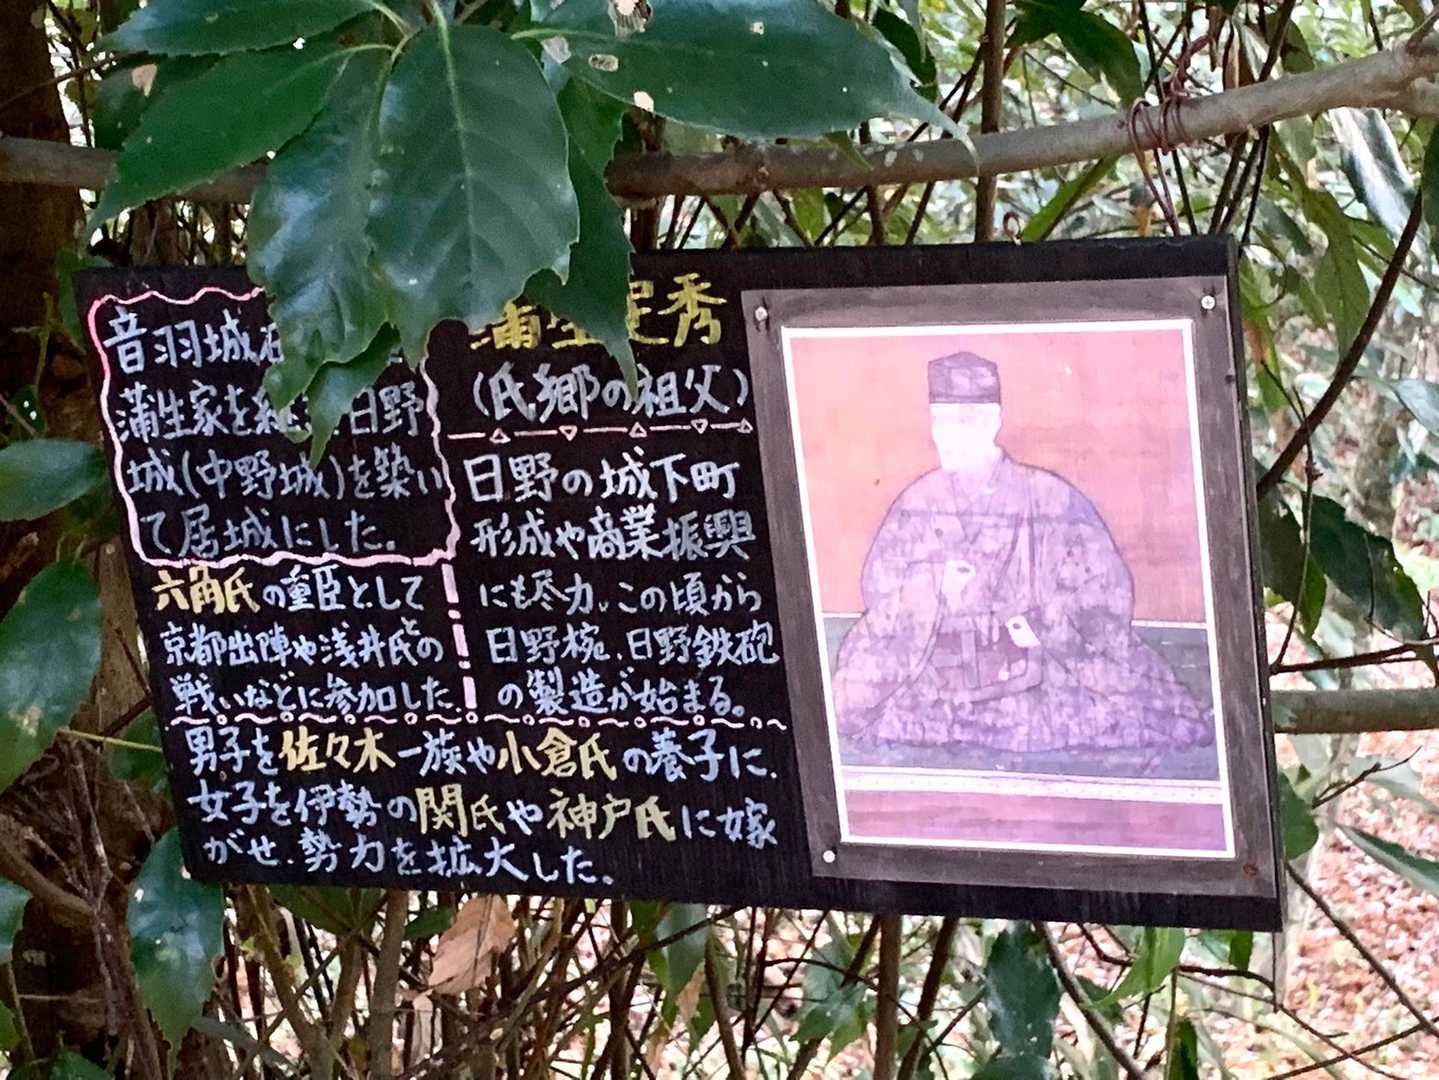 音羽城
蒲生家を継 日野
城(中野城)を築い
て居城にした。
六角氏の重臣として
京都出陣や浅井氏との
戦いなどに参加した
蒲生定秀
(氏郷の祖父)
日野の城下町
形成や商業振興
にも尽力。この頃から
日野椀、日野鉄砲
の製造が始まる。
男子を佐々木一族や小倉氏の養子に、
女子を伊勢の関氏や神戸氏に嫁
がせ、勢力を拡大した。